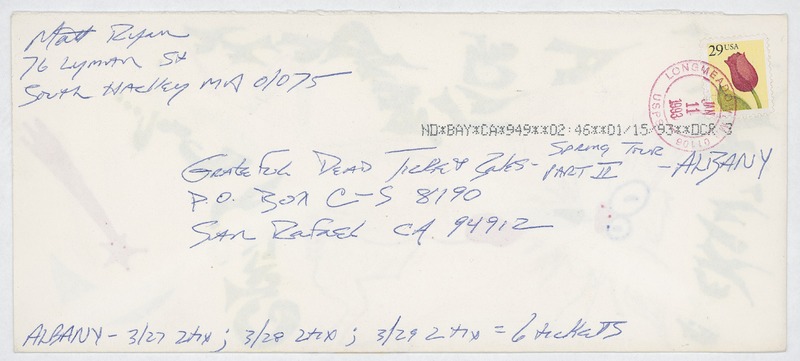 Matt Ryan
76 Lyman St
South Hadley MA 01075
29 USA
LONGMEADOW MA
JAN
11
1993
USPS 01106
ND*BAY*CA*949**02:46**01/15/93**DCR 3
Grateful Dead Ticket Sales - Spring Tour Part II - ALBANY
P.O. Box C-S 8190
San Rafael CA 94912
ALBANY - 3/27 2tix ; 3/28 2tix ; 3/29 2tix = 6 tickets